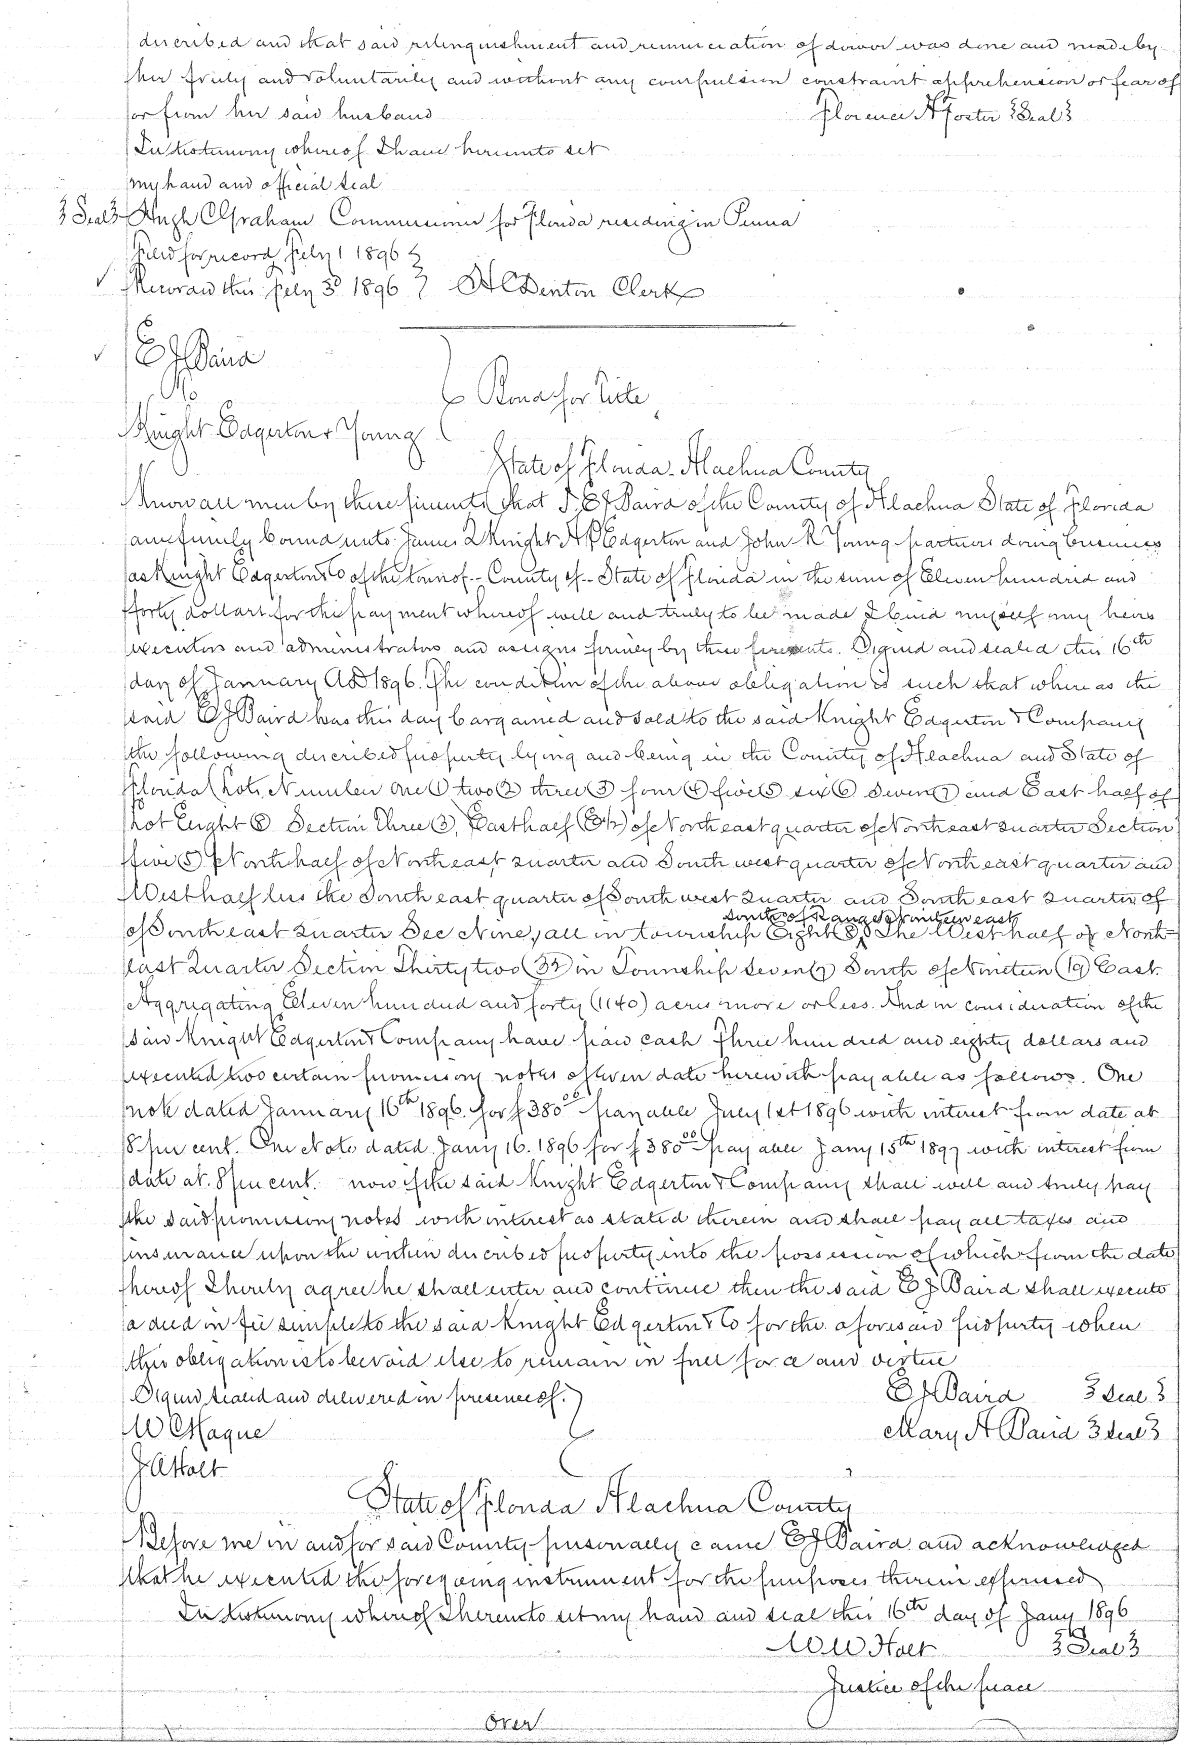 described and that said relinquishment and renunciation of dower was done and made by
her freely and voluntarily and without any compulsion constraint apprehension or fear of
or from her said husband Florence A Foster {Seal}
In testimony whereof I have hereunto set
my hand and official seal
{Seal} Hugh C Graham Commissioner for Florida residing in Penna
Filed for record Feby 1 1896 }
✓ Record this Feby 3d 1896 } H C Denton Clerk
✓ E J Baird
To } Bond for Title
Knight Edgerton & Young
State of Florida. Alachua County
Know all men by these presents, that I, E J Baird of the County of Alachua State of Florida
am firmly bound unto James Q Knight A P Edgerton and John R Young partners doing business
as Knight Edgerton & Co of the town of -- County of -- State of Florida in the sum of Eleven hundred and
forty dollars for the payment whereof well and truly to be made I bind myself my heirs
executors and administrators and assigns firmly by these presents. Signed and sealed this 16th
day of January A D 1896. The condition of the above obligation is such that where as the
said E J Baird has this day bargained and sold to the said Knight Edgerton & Company
the following described property lying and being in the County of Alachua and State of
Florida (Lots Number one (1) two (2) three (3) four (4) five (5) six (6) Seven (7) and East half of
Lot Eight (8) Section Three (3), East half (E½) of North east quarter of North east quarter Section
five (5) North half of North east quarter and South west quarter of North east quarter and
West half less the South east quarter of South west quarter and South east quarter of
south of Range Nineteen east
of South east quarter Sec Nine, all in township Eight (8) The West half of North-
east Quarter Section Thirty two (32) in Township Seven (7) South of Nineteen (19) East.
Aggregating Eleven hundred and forty (1140) acres more or less. And in consideration of the
said Knight Edgerton & Company have paid cash Three hundred and eighty dollars and
executed two certain promissory notes of even date herewith payable as follows. One
note dated January 16th 1896. for $380.00 payable July 1st 1896 with interest from date at
8 per cent. One Note dated Jany 16. 1896 for $380.00 payable Jany 15th 1897 with interest from
date at 8 per cent. now if the said Knight Edgerton & Company shall well and truly pay
the said promissory notes with interest as stated therein and shall pay all taxes and
insurance upon the within described property into the possession of which from the date
hereof I hereby agree he shall enter and continue then the said E J Baird shall execute
a deed in fee simple to the said Knight Edgerton & Co for the aforesaid property when
this obligation is to be void else to remain in full force and virtue
Signed sealed and delivered in presence of. } E J Baird {Seal}
W C Hague Mary A Baird {Seal}
J A Holt
State of Florida Alachua County
Before me in and for said County personally came E J Baird and acknowledged
that he executed the foregoing instrument for the purposes therein expressed
In testimony whereof I hereunto set my hand and seal this 16th day of Jany 1896
W W Holt {Seal}
Justice of the peace
Over